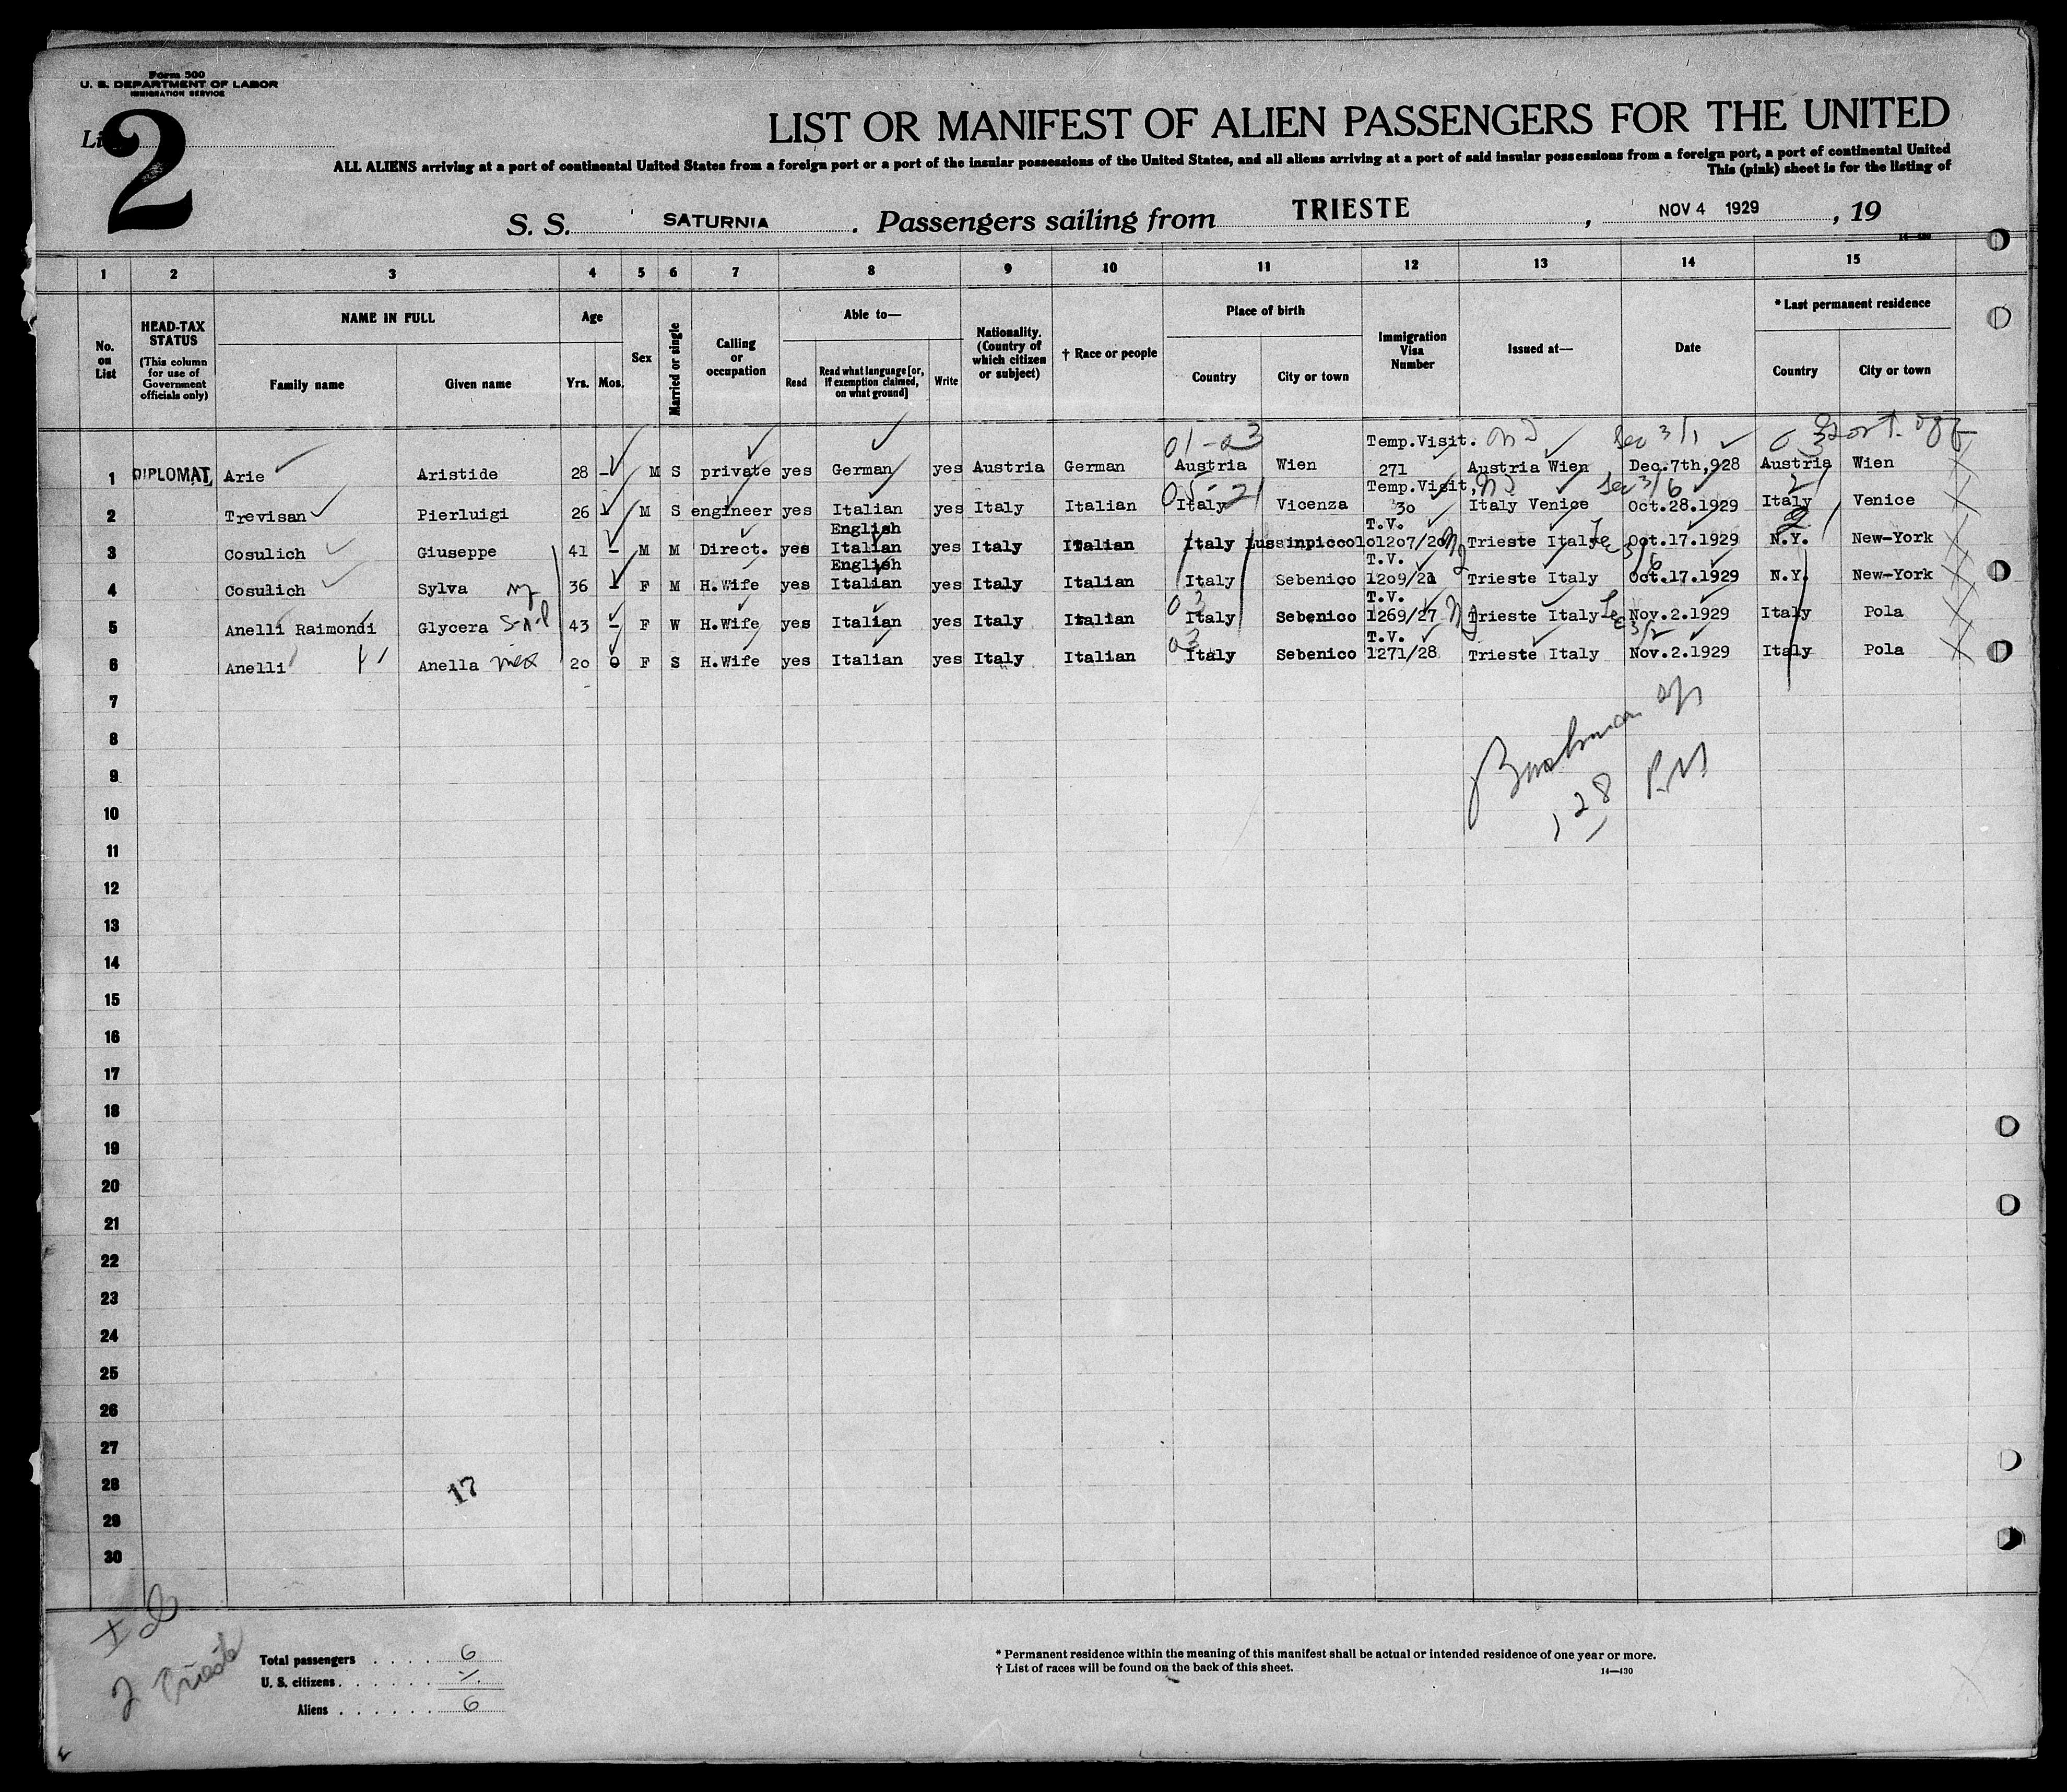 Form 500
U. S. DEPARTMENT OF LABOR
IMMIGRATION SERVICE
2
LIST OR MANIFEST OF ALIEN PASSENGERS FOR THE UNITED
ALL ALIENS arriving at a port of continental United States from a foreign port or a port of the insular possessions of the United States, and all aliens arriving at a port of said insular possessions from a foreign port, a port of continental United
This (pink) sheet is for the listing of
S. S. SATURNIA . Passengers sailing from TRIESTE , NOV 4 1929 , 19
14—430
1 2 3 4 5 6 7 8 9 10 11 12 13 14 15
No. on List
HEAD-TAX STATUS (This column for use of Government officials only)
NAME IN FULL
Family name Given name
Age
Yrs. Mos.
Sex
Married or single
Calling or occupation
Able to—
Read Read what language [or, if exemption claimed, on what ground] Write
Nationality. (Country of which citizen or subject)
† Race or people
Place of birth
Country City or town
Immigration Visa Number
Issued at—
Date
* Last permanent residence
Country City or town
01-03 Temp.Visit.
1 DIPLOMAT Arie Aristide 28 — M S private yes German yes Austria German Austria Wien 271 Austria Wien Dec.7th,928 Austria Wien
Temp.Visit,
2 Trevisan Pierluigi 26 M S engineer yes Italian yes Italy Italian Italy Vicenza 30 Italy Venice Oct.28.1929 Italy Venice
English T.V.
3 Cosulich Giuseppe 41 — M M Direct. yes Italian yes Italy Italian Italy Lussinpiccolo 1207/20 Trieste Italy Oct.17.1929 N.Y. New-York
English T.V.
4 Cosulich Sylva ny 36 — F M H.Wife yes Italian yes Italy Italian Italy Sebenico 1209/21 Trieste Italy Oct.17.1929 N.Y. New-York
T.V.
5 Anelli Raimondi Glycera 43 — F W H.Wife yes Italian yes Italy Italian Italy Sebenico 1269/27 Trieste Italy Nov.2.1929 Italy Pola
T.V.
6 Anelli Anella 20 0 F S H.Wife yes Italian yes Italy Italian Italy Sebenico 1271/28 Trieste Italy Nov.2.1929 Italy Pola
7
8
9
10
11
12
13
14
15
16
17
18
19
20
21
22
23
24
25
26
27
28
17
29
30
Total passengers . . . . 6
U. S. citizens . . . . . .
Aliens . . . . . . 6
* Permanent residence within the meaning of this manifest shall be actual or intended residence of one year or more.
† List of races will be found on the back of this sheet.
14—430